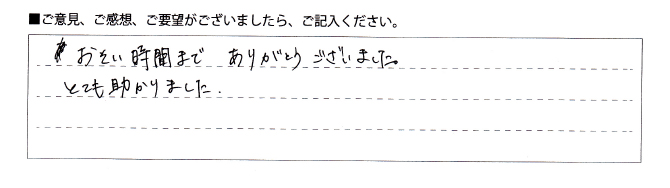 ■ご意見、ご感想、ご要望がございましたら、ご記入ください。
おそい時間まで ありがとうございました。
とても助かりました.